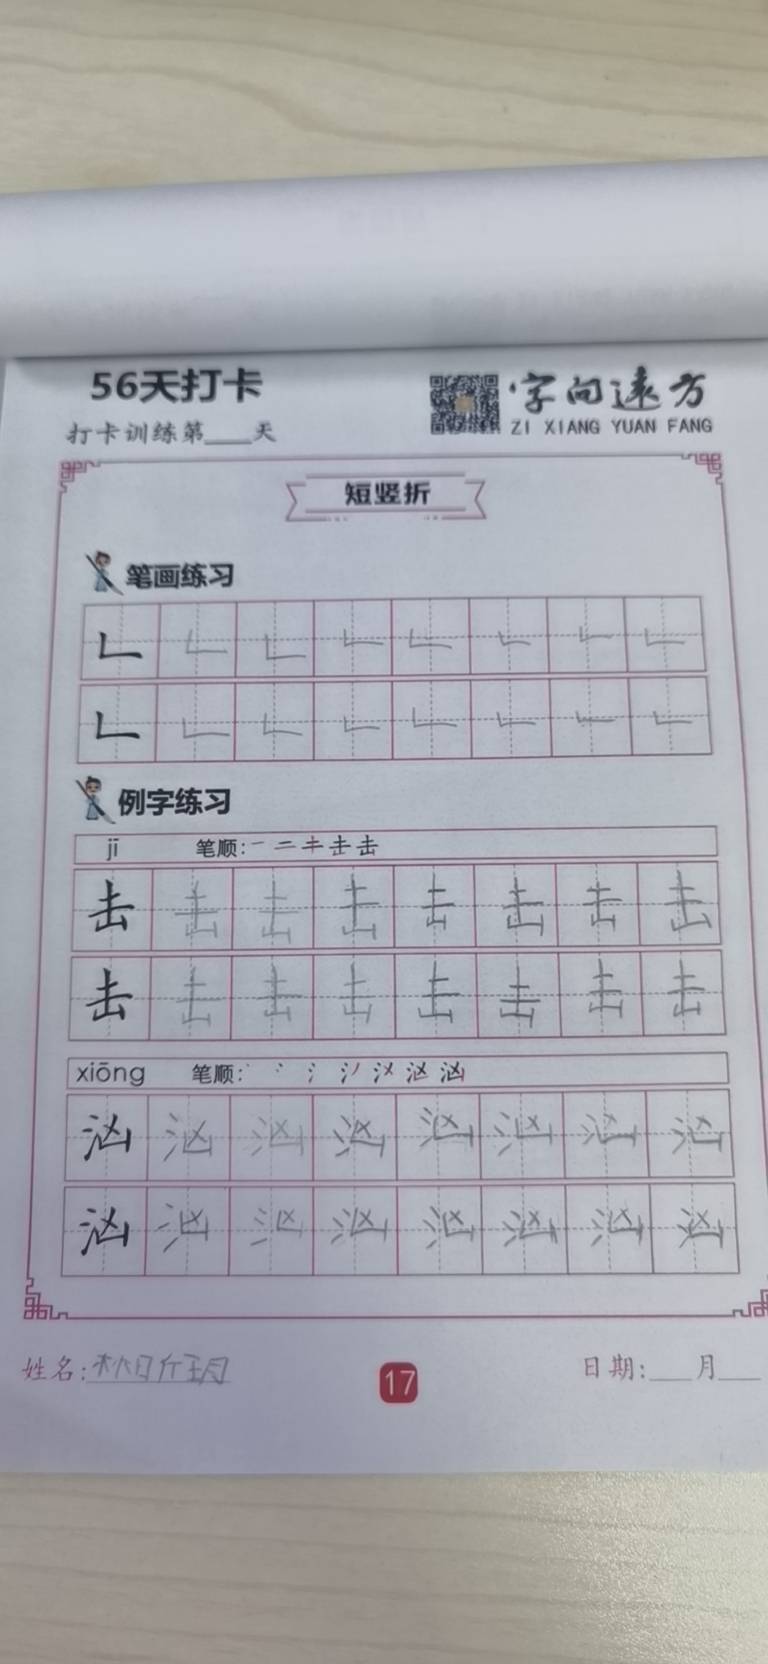 56天打卡
字向远方
打卡训练第___天
ZI XIANG YUAN FANG
短竖折
笔画练习
𠃊
𠃊
例字练习
jī 笔顺: 一 二 キ 击 击
击 击 击 击 击 击 击 击
击 击 击 击 击 击 击 击
xiōng 笔顺: 丶 丶 氵 汹 汹
汹 汹 汹 汹 汹 汹 汹 汹
汹 汹 汹 汹 汹 汹 汹 汹
姓名:
17
日期:___月___